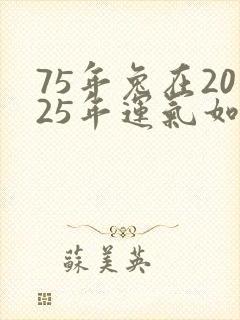 75年兔在20
25年運氣如
蘇美英